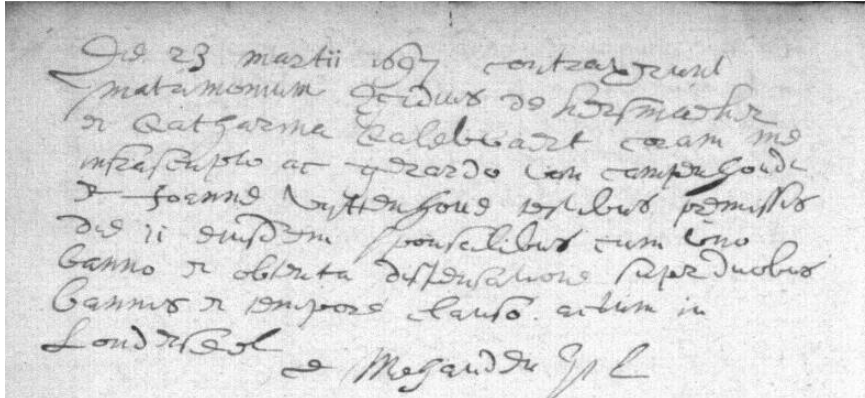 Die 23 martii 1697 contraxerunt
matrimonium Egidius de hersmaeker
et Catharina Calewaert coram me
infrascripto ac gerardo van campenhoudt
et Joanne uyttenhove testibus premissis
die 11 eiusdem sponsalibus cum uno
banno et obtenta dispensatione super duobus
bannis et tempore clauso. actum in
Londerseel